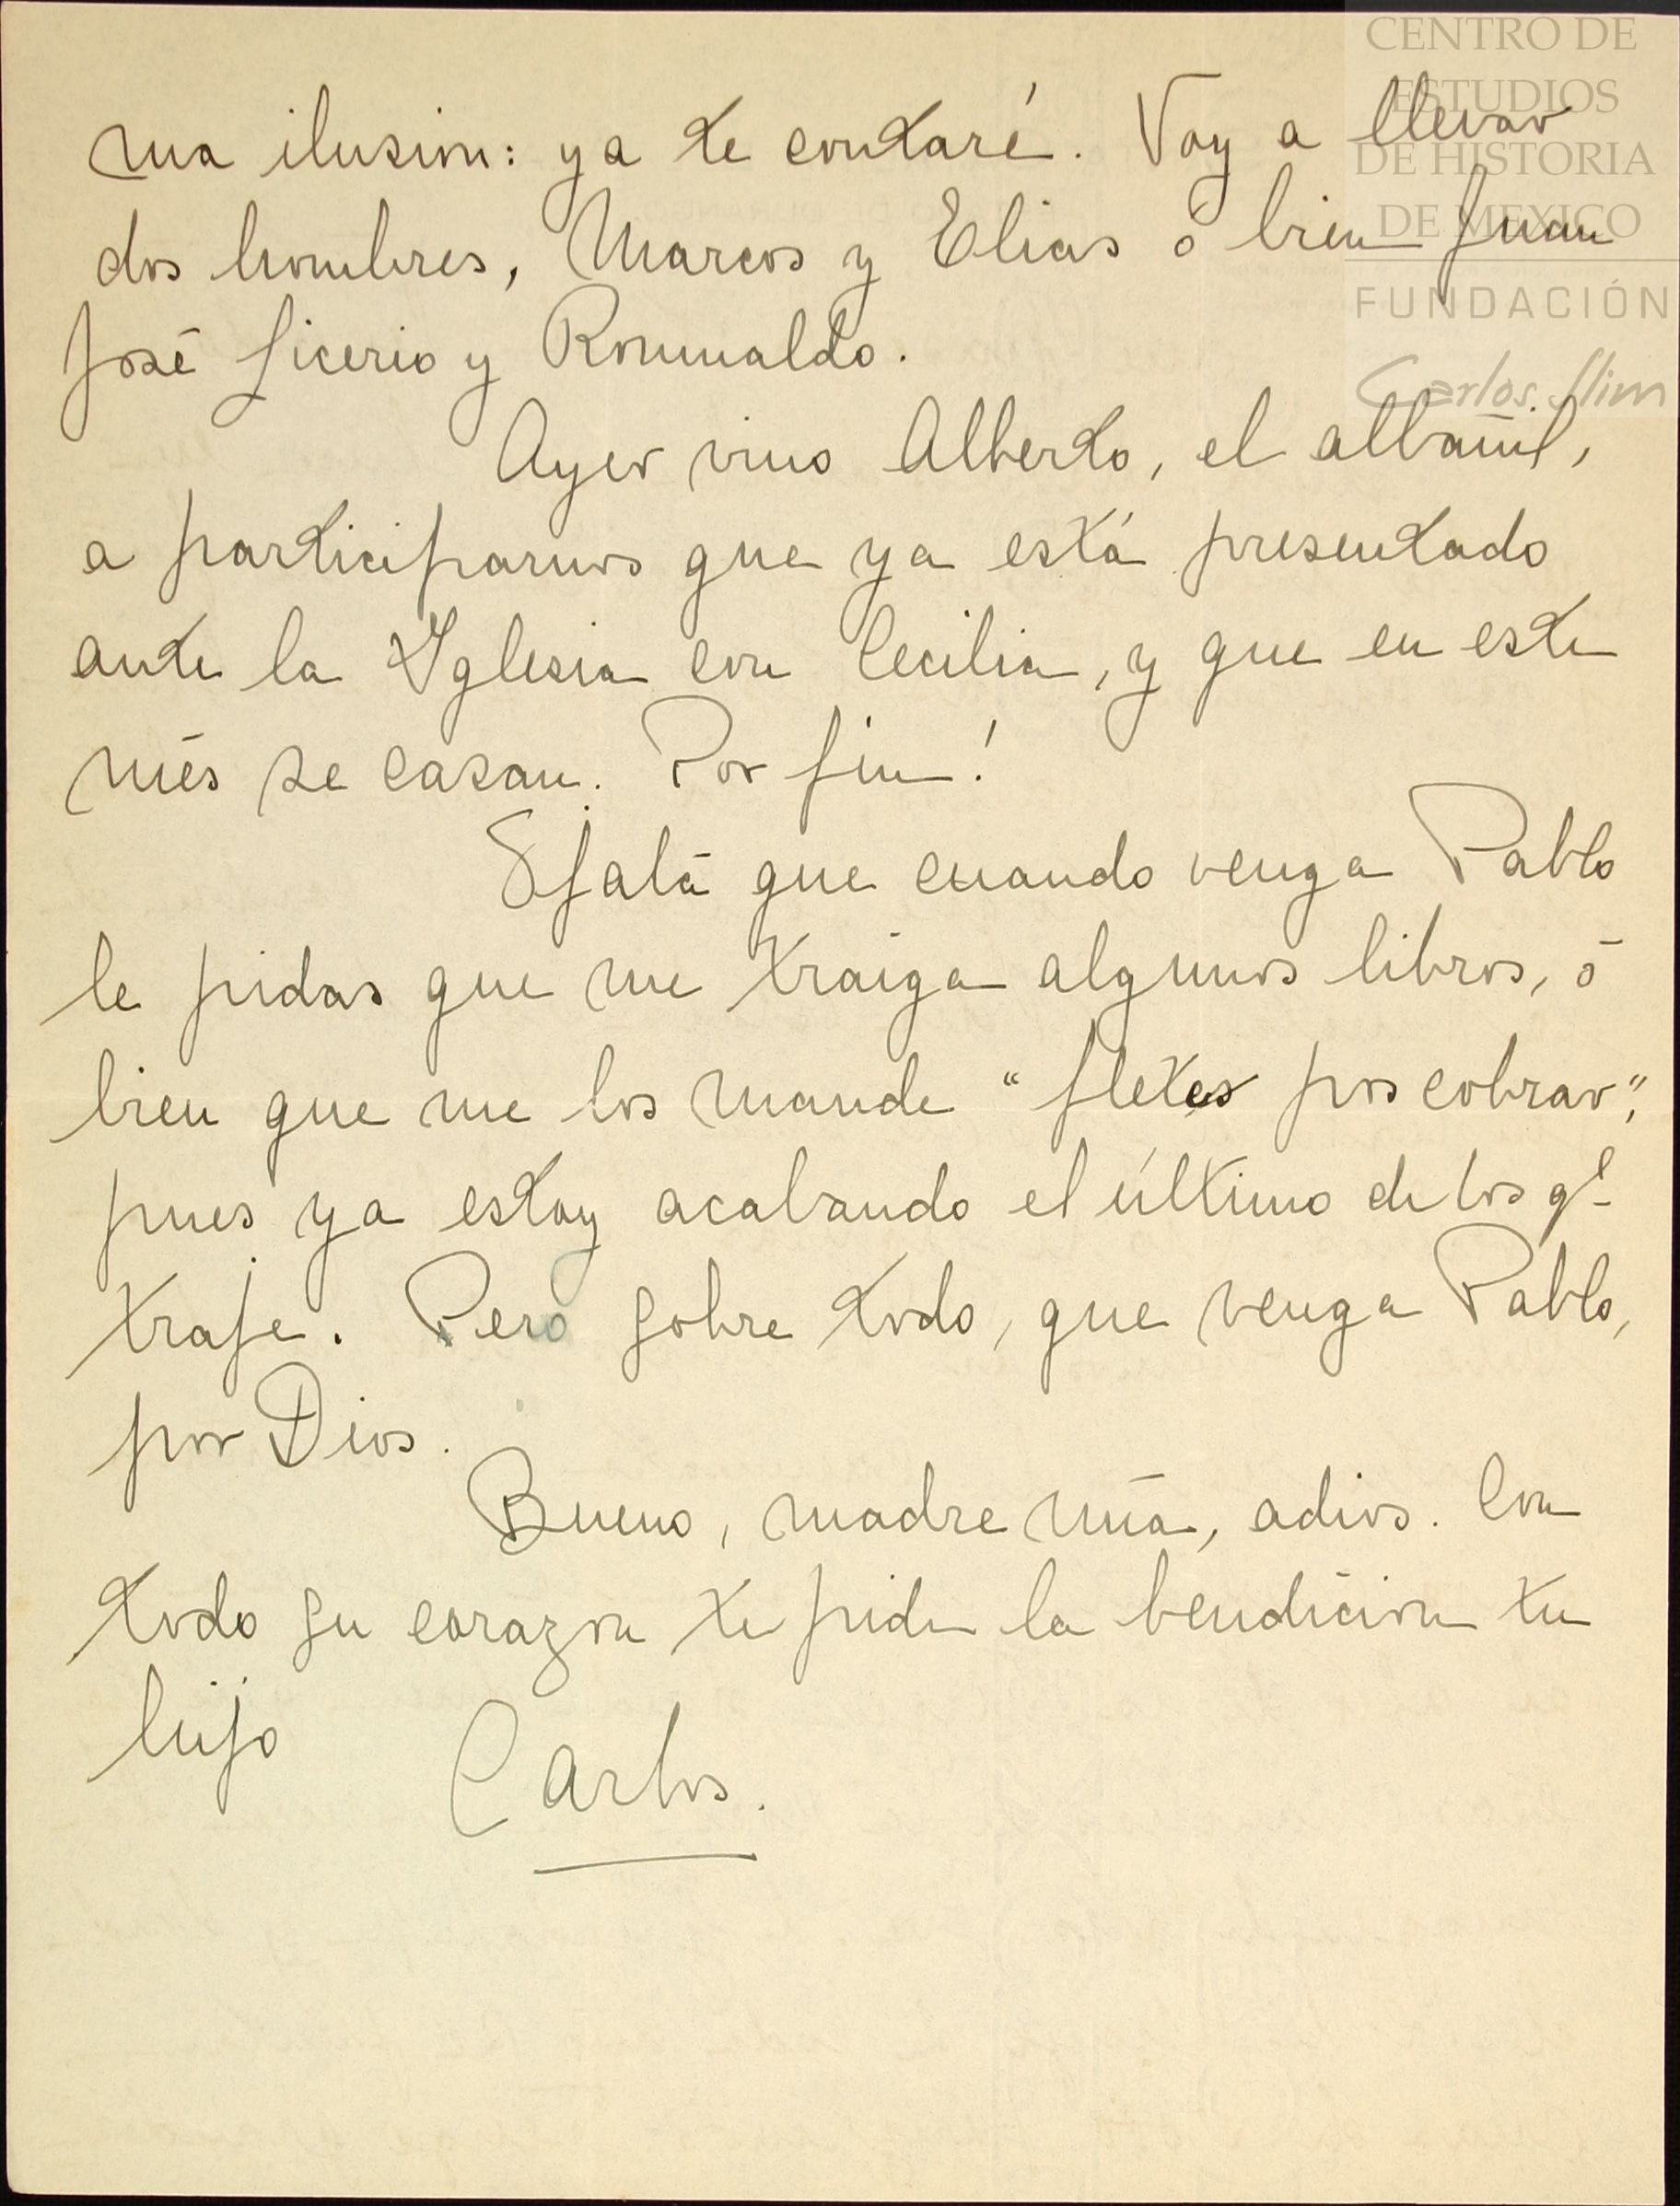 una ilusion: ya te contaré. Voy a llevar
dos hombres, Marcos y Elias ó bien Juan
José Licerio y Romualdo.
Ayer vino Alberto, el albañil,
a participarnos que ya está presentado
ante la Iglesia con Cecilia, y que en este
més se casan. Por fin!
Ojalá que cuando venga Pablo
le pidas que me traiga algunos libros, ó
bien que me los mande "fletes por cobrar",
pues ya estoy acabando el último de los qe
traje. Pero sobre todo, que venga Pablo,
por Dios.
Bueno, madre mía, adios. Con
todo su corazon te pide la bendición tu
hijo Carlos.
CENTRO DE
ESTUDIOS
DE HISTORIA
DE MEXICO
FUNDACIÓN
Carlos Slim